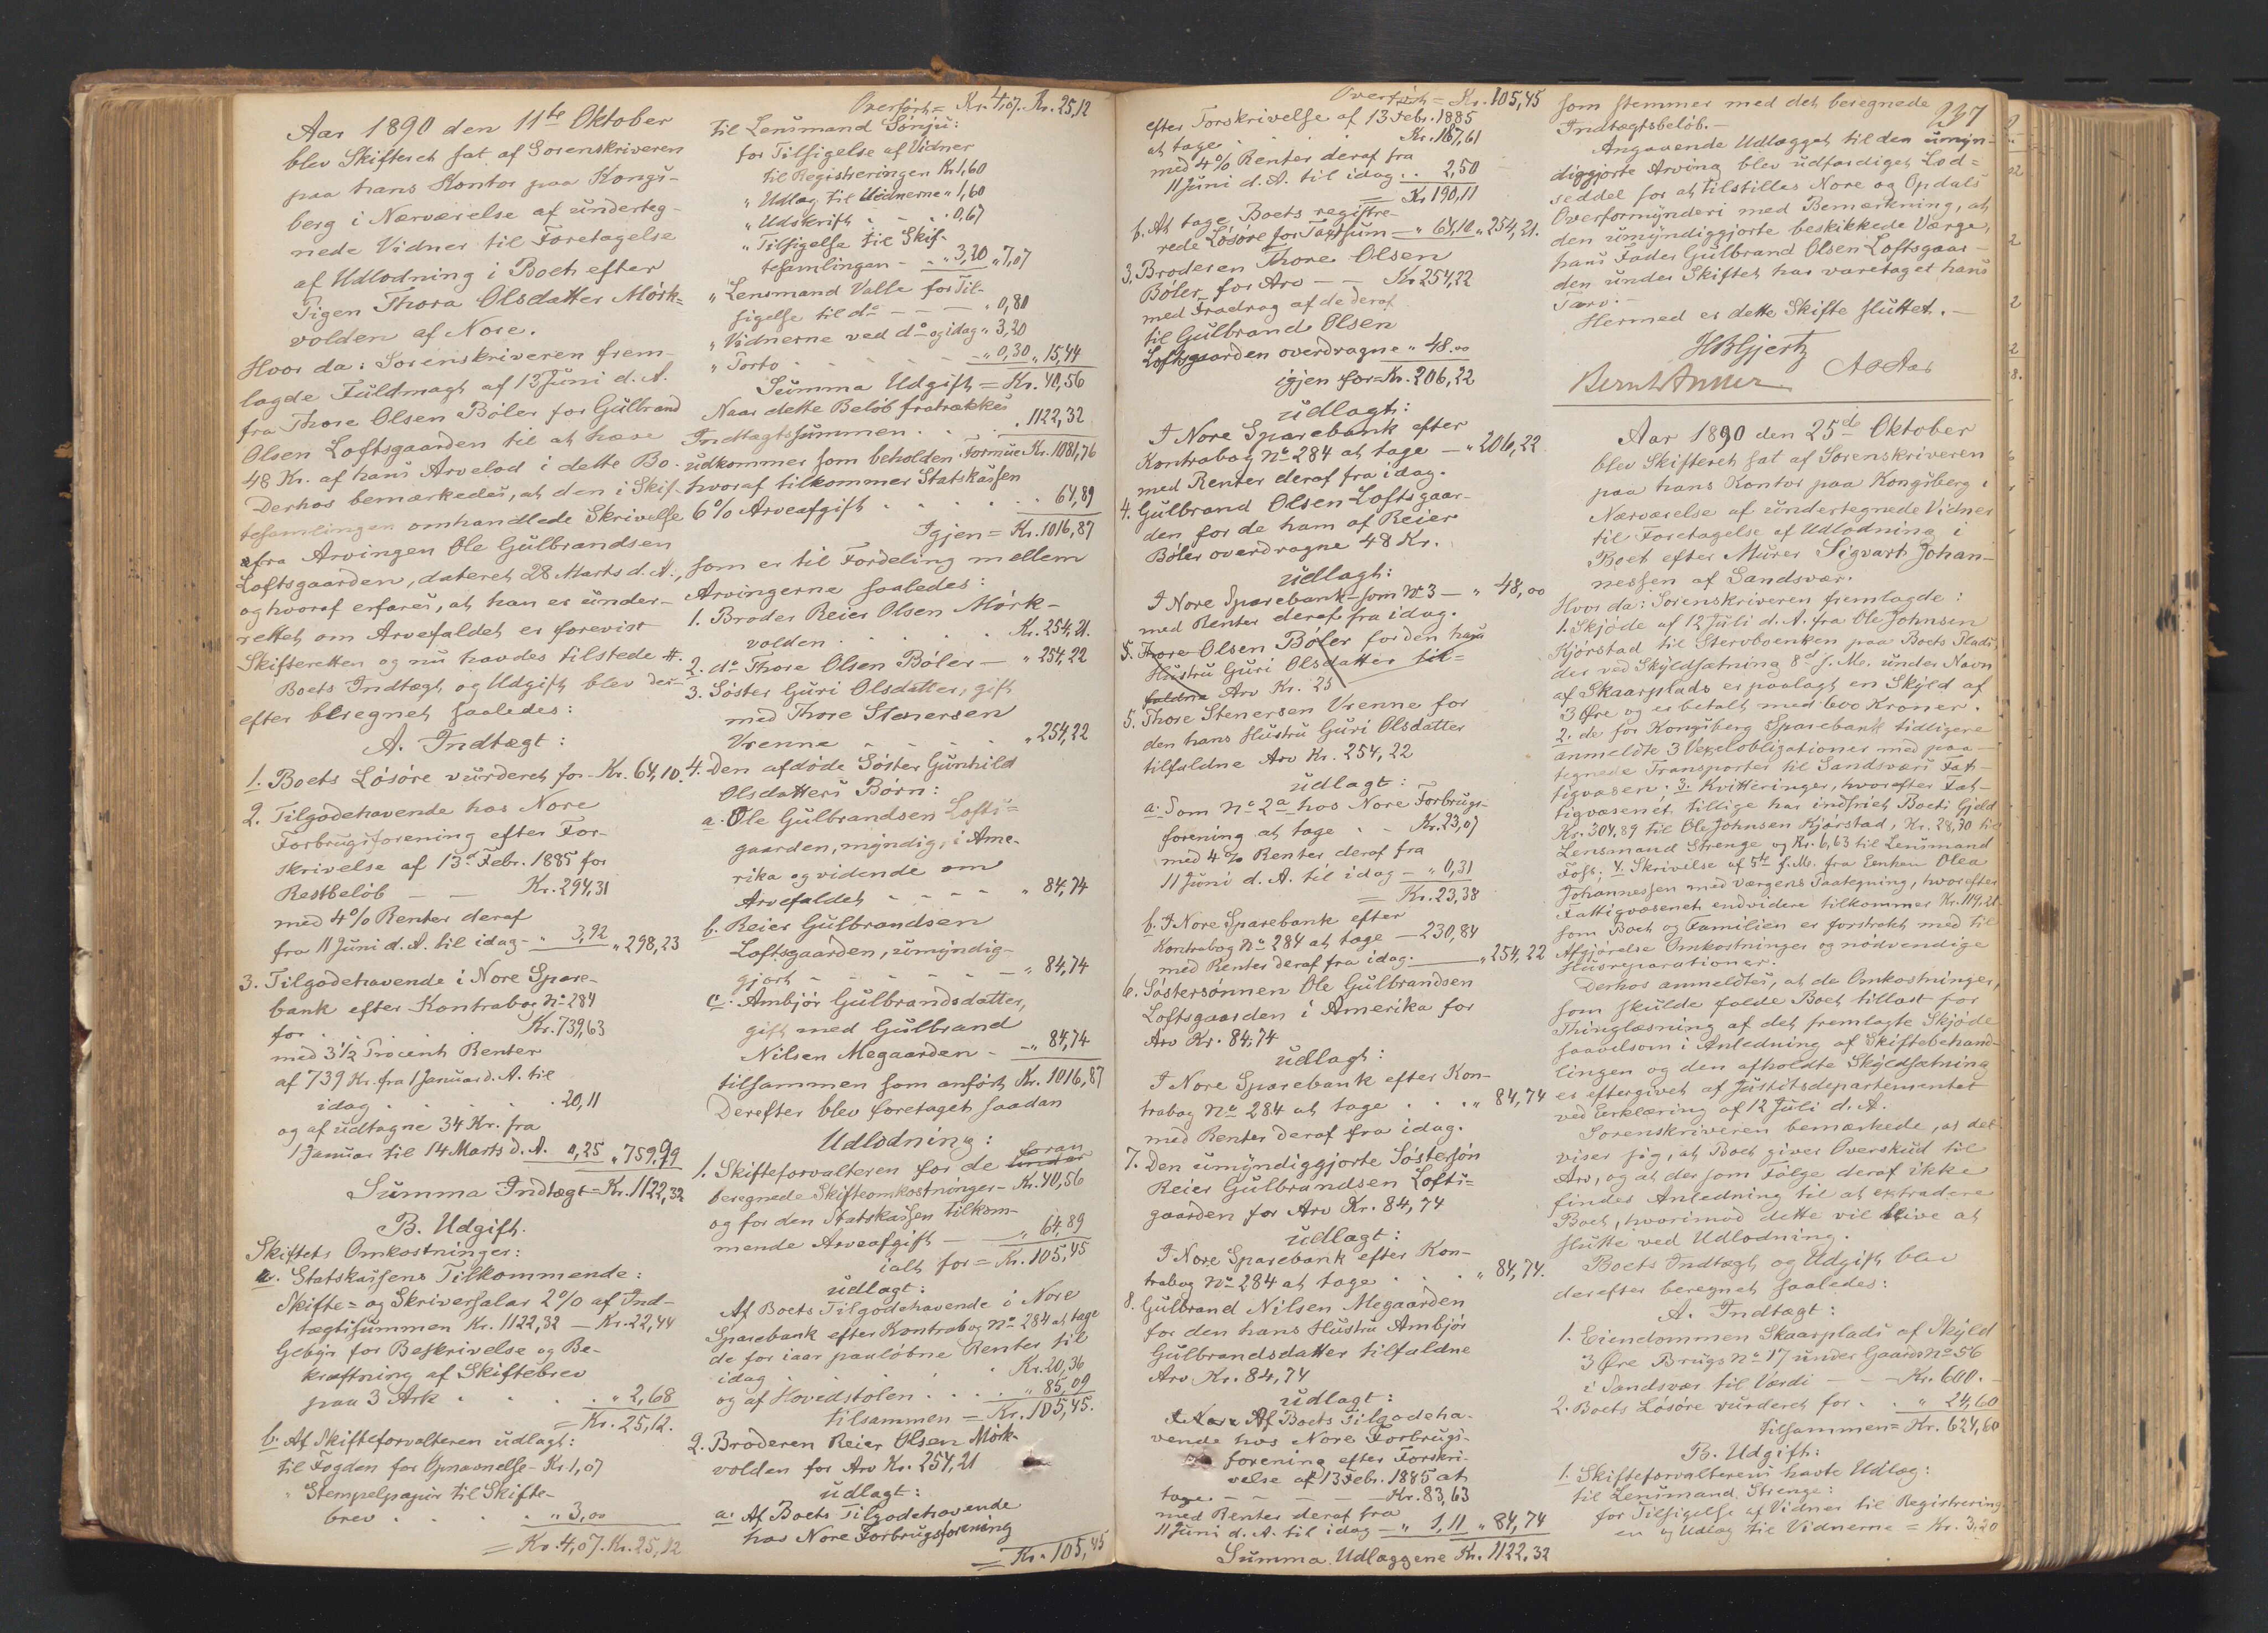 Aar 1890 den 11te Oktober
blev Skifteret sat af Sorenskriveren
paa hans Kontor paa Kongs-
berg i Nærværelse af underteg-
nede Vidner til Foretagelse
af Udlodning i Boet efter
Pigen Thora Olsdatter Mørk=
volden af Nore.
Hvor da: Sorenskriveren frem-
lagde Fuldmagt af 13 Juni d. A.
fra Thore Olsen Bøler for Gulbrand
Olsen Loftsgaarden til at hæve
48 Kr. af hans Arvelod i dette Bo.
Derhos bemærkedes, at den i Skif-
tesamlingen omhandlede Skrivelse
fra Arvingen Ole Gulbrandsen
Loftsgaarden, dateret 28 Marts d. A.,
og hvoraf erfares, at han er under-
rettet om Arvefaldet er forevist
Skifteretten og nu havdes tilstede #.
Boets Indtægt og Udgift blev der-
efter beregnet saaledes:
A. Indtægt:
1. Boets Løsøre vurderet for - Kr. 64,10.
2. Tilgodehavende hos Nore
Forbrugsforening efter For-
skrivelse af 13d Febr. 1885 for
Restbeløb — — Kr. 294,31
med 4% Renter deraf
fra 11 Juni d. A. til idag - " 3,92 " 298,23
3. Tilgodehavende i Nore Spare-
bank efter Kontrabog No 284
for . . . Kr. 739,63
med 3 1/2 Procent Renter
af 739 Kr. fra 1 Januar d. A. til
idag . . . . 20,11
og af udtagne 34 Kr. fra
1 Januar til 14 Marts d. A. 0,25 " 759,99
Summa Indtægt = Kr. 1122,32
B. Udgift.
Skiftets Omkostninger:
a. Statskassens Tilkommende:
Skifte= og Skriversalar 2% af Ind-
tægtssummen Kr. 1122,32 — Kr. 22,44
Gebyr for Beskrivelse og Be-
kræftning af Skiftebrev
paa 3 Ark . . . . " 2,68
= Kr. 25,12.
b. Af Skifteforvalteren udlagt:
til Fogden for Opnævnelse - Kr. 1,07
" Stempelpapir til Skifte-
brev . . . . " 3,00
= Kr. 4,07. Kr. 25,12
Overført = Kr. 4,07. Kr. 25,12
til Lensmand Sønju:
for Tilsigelse af Vidner
til Registreringen Kr. 1,60
" Udlæg til Vidnerne " 1,60
" Udskrift . . . . 0,67
" Tilsigelse til Skif-
tesamlingen - - " 3,20 " 7,07
" Lensmand Valle for Til-
sigelse til do — — — . 0,80
" Vidnerne ved do og idag " 3,20
" Porto . . . . — " 0,30 " 15,44
Summa Udgift = Kr. 40,56
Naar dette Beløb fratrækkes
Indtægtssummen . . . . 1122,32
udkommer som beholden Formue Kr. 1081,76
hvoraf tilkommer Statskassen
6% Arveafgift . . . . . 64,89
Igjen = Kr. 1016,87
som er til Fordeling mellem
Arvingerne saaledes:
1. Broder Reier Olsen Mørk-
volden . . . . . Kr. 254,21.
2. do Thore Olsen Bøler — " 254,22
3. Søster Guri Olsdatter, gift
med Thore Stenersen
Vrenne - - - - " 254,22
4. Den afdøde Søster Gunhild
Olsdatters Børn:
a. Ole Gulbrandsen Lofts=
gaarden, myndig, i Ame-
rika og vidende om
Arvefaldet - - - - " 84,74
b. Reier Gulbrandsen
Loftsgaarden, umyndig-
gjort - - - - - — " 84,74
c. Ambjør Gulbrandsdatter,
gift med Gulbrand
Nilsen Megaarden - —" 84,74
tilsammen som anført Kr. 1016,87
Derefter blev foretaget saadan
Udlodning:
foran
1. Skifteforvalteren for de under
beregnede Skifteomkostninger - Kr. 40,56
og for den Statskassen tilkom-
mende Arveafgift — — " 64,89
ialt for = Kr. 105,45
udlagt:
Af Boets Tilgodehavende i Nore
Sparebank efter Kontrabog No 284 at tage
de for iaar paaløbne Renter til
idag . . . . . Kr. 20,36
og af Hovedstolen . . . . " 85,09
tilsammen = Kr. 105,45.
2. Broderen Reier Olsen Mørk-
volden for Arv Kr. 254,21
udlagt:
a. Af Boets Tilgodehavende
hos Nore Forbrugsforening
= Kr. 105,45
Overført = Kr. 105,45
efter Forskrivelse af 13 Febr. 1885
at tage . . . . Kr. 187,61
med 4% Renter deraf fra
11 Juni d. A. til idag . . 2,50
= Kr 190,11
b. At tage Boets registre-
rede Løsøre for Taxtsum — " 64,10 " 254,21.
3. Broderen Thore Olsen
Bøler for Arv — — Kr 254,22
med Fradrag af de deraf
til Gulbrand Olsen
Loftsgaarden overdragne " 48.00
igjen for = Kr. 206,22
udlagt:
I Nore Sparebank efter
Kontrabog No 284 at tage — " 206,22
med Renter deraf fra idag.
4. Gulbrand Olsen Loftsgaar-
den for de ham af Reier
Bøler overdragne 48 Kr.
udlagt:
I Nore Sparebank som No 3 — " 48,00
med Renter deraf fra idag.
5. Thore Olsen Bøler for den hans
Hustru Guri Olsdatter til=
faldne Arv Kr. 25
5. Thore Stenersen Vrenne for
den hans Hustru Guri Olsdatter
tilfaldne Arv Kr. 254,22
udlagt:
a. Som No 2a hos Nore Forbrugs-
forening at tage . - Kr. 23,07
med 4% Renter deraf fra
11 Juni d. A. til idag — " 0,31
= Kr. 23,38
b. I Nore Sparebank efter
Kontrabog No 284 at tage — 230,84
med Renter deraf fra idag. — " 254,22
6. Søstersønnen Ole Gulbrandsen
Loftsgaarden i Amerika for
Arv Kr. 84,74
udlagt:
I Nore Sparebank efter Kon-
trabog No 284 at tage . . . " 84,74
med Renter deraf fra idag.
7. Den umyndiggjorte Søstersøn
Reier Gulbrandsen Lofts=
gaarden for Arv Kr. 84,74
udlagt:
I Nore Sparebank efter Kon-
trabog No 284 at tage . . . " 84,74.
8. Gulbrand Nilsen Megaarden
for den hans Hustru Ambjør
Gulbrandsdatter tilfaldne
Arv Kr. 84,74
udlagt:
I Nore Af Boets Tilgodeha-
vende hos Nore Forbrugs-
forening efter Forskri-
velse af 13 Febr. 1885 at
tage. — — — — — Kr. 83,63
med Renter deraf fra
11 Juni d. A. til idag — " 1,11 " 84,74
Summa Udlæggene Kr. 1122,32
237
som stemmer med det beregnede
Indtægtsbeløb. —
Angaaende Udlægget til den umyn-
diggjorte Arving blev udfærdiget Lod=
seddel for at tilstilles Nore og Opdals
Overformynderi med Bemærkning, at
den umyndiggjorte beskikkede Værge,
hans Fader Gulbrand Olsen Loftsgaar-
den under Skiftet har varetaget hans
Tarv. —
Hermed er dette Skifte sluttet. —
HBHjertz
Aar 1890 den 25de Oktober
blev Skifteret sat af Sorenskriveren
paa hans Kontor paa Kongsberg i
Nærværelse af undertegnede Vidner
til Foretagelse af Udlodning i
Boet efter Murer Sigvart Johan-
nessen af Sandsvær.
Hvor da: Sorenskriveren fremlagde:
1. Skjøde af 12 Juli d. A. fra Ole Johnsen
Kjørstad til Stervboenken paa Boets Plads,
der ved Skyldsætning 8de f. M. under Navn
af Skaarplads er paalagt en Skyld af
3 Øre og er betalt med 600 Kroner.
2. de for Kongsberg Sparebank tidligere
anmeldte 3 Vexelobligationer med paa-
tegnede Transporter til Sandsværs Fat-
tigvæsen; 3. Kvitteringer, hvorefter Fat-
tigvæsenet tillige har indfriet Boets Gjeld
Kr. 304,89 til Ole Johnsen Kjørstad, Kr. 28,30 til
Lensmand Strenge og Kr. 6,63 til Lensmand
Foss; 4. Skrivelse af 5te f. M. fra Eenken Olea
Johannessen med Værgens Paategning, hvorefter
Fattigvæsenet endvidere tilkommer Kr. 119,21
som Boet og Familien er forstrakt med til
Afgjørelse Omkostninger og nødvendige
Husreparationer.
Derhos anmeldtes, at de Omkostninger,
som skulde falde Boet tillast for
Thinglæsning af det fremlagte Skjøde
saavelsom i Anledning af Skiftebehand-
lingen og den afholdte Skyldsætning
er eftergivet af Justitsdepartementet
ved Erklæring af 12 Juli d. A.
Sorenskriveren bemærkede, at det
viser sig, at Boet giver Overskud til
Arv, og at der som Følge deraf ikke
findes Anledning til at extradere
Boet, hvorimod dette vil blive at
slutte ved Udlodning.
Boets Indtægt og Udgift blev
derefter beregnet saaledes:
A. Indtægt:
1. Eiendommen Skaarplads af Skyld
3 Øre Brugs No 17 under Gaards No 56
i Sandsvær til Værdi — — Kr. 600. -
2. Boets Løsøre vurderet for . . " 24,60
Tilsammen = Kr. 624,60
B. Udgift:
1. Skifteforvalterens havte Udlæg:
til Lensmand Strenge:
for Tilsigelse af Vidner til Registrering-
en og Udlæg til Vidnerne = Kr. 3,20